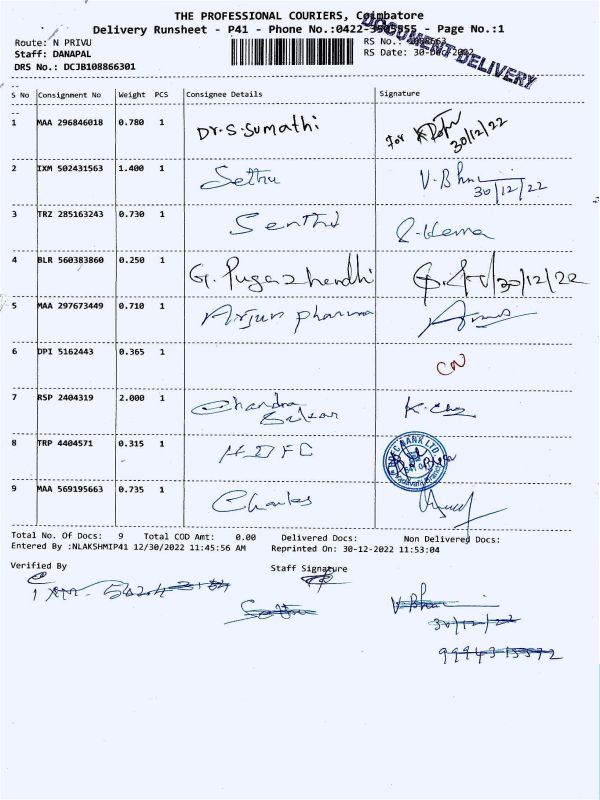 THE PROFESSIONAL COURIERS, Coimbatore
Delivery Runsheet - P41 - Phone No.:0422- - Page No.:1
DOCUMENT DELIVERY
Route: N PRIVU
RS No.:
Staff: DANAPAL
RS Date: 30-Dec-2022
DRS No.: DCJB108866301
S No Consignment No Weight PCS Consignee Details Signature
1 MAA 296846018 0.780 1 Dr.S.Sumathi for
30/12/22
2 IXM 502431563 1.400 1 Sethu V.Bha
30/12/22
3 TRZ 285163243 0.730 1 Senthil
4 BLR 560383860 0.250 1 G. Pugazhendhi 30/12/22
5 MAA 297673449 0.710 1 Arjun pharma
6 DPI 5162443 0.365 1 CN
7 RSP 2404319 2.000 1 Chandra
8 TRP 4404571 0.315 1 HDFC
HDFC BANK LTD.
9 MAA 569195663 0.735 1 Charles
Total No. Of Docs: 9 Total COD Amt: 0.00 Delivered Docs: Non Delivered Docs:
Entered By :NLAKSHMIP41 12/30/2022 11:45:56 AM Reprinted On: 30-12-2022 11:53:04
Verified By Staff Signature
Sethu V.Bha
30/12/22